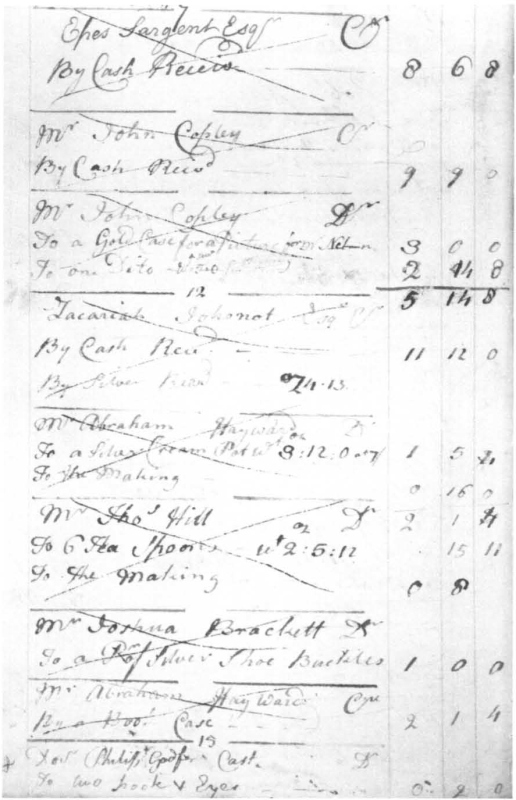 17
Epes Sargent Esqr Cr
By Cash Receivd 8 6 8
Mr John Copley Cr
By Cash Recivd 9 9 0
Mr John Copley Dr
To a Gold Case for a Picture 3 0 0
To one Dito 2 14 8
5 14 8
12
Zacariah Johonot Esqr Cr
By Cash Recd 11 12 0
By Silver Recd oz 4.13
Mr Abraham Hayward Dr
To a Silver Cream Pot wt oz 3:12:0 at 7/ 1 5 4
To the Making 0 16 0
2 1 4
Mr Thos Hill Dr
To 6 Tea Spoons wt oz 2:5:12 15 11
To the Making 0 8
Mr Joshua Brackett Dr
To a Pr of Silver Shoe Buckles 1 0 0
Mr Abraham Hayward Cr
By a Case 2 1 4
Godfr Cast Dr
To two hook & Eyes 0 2 0